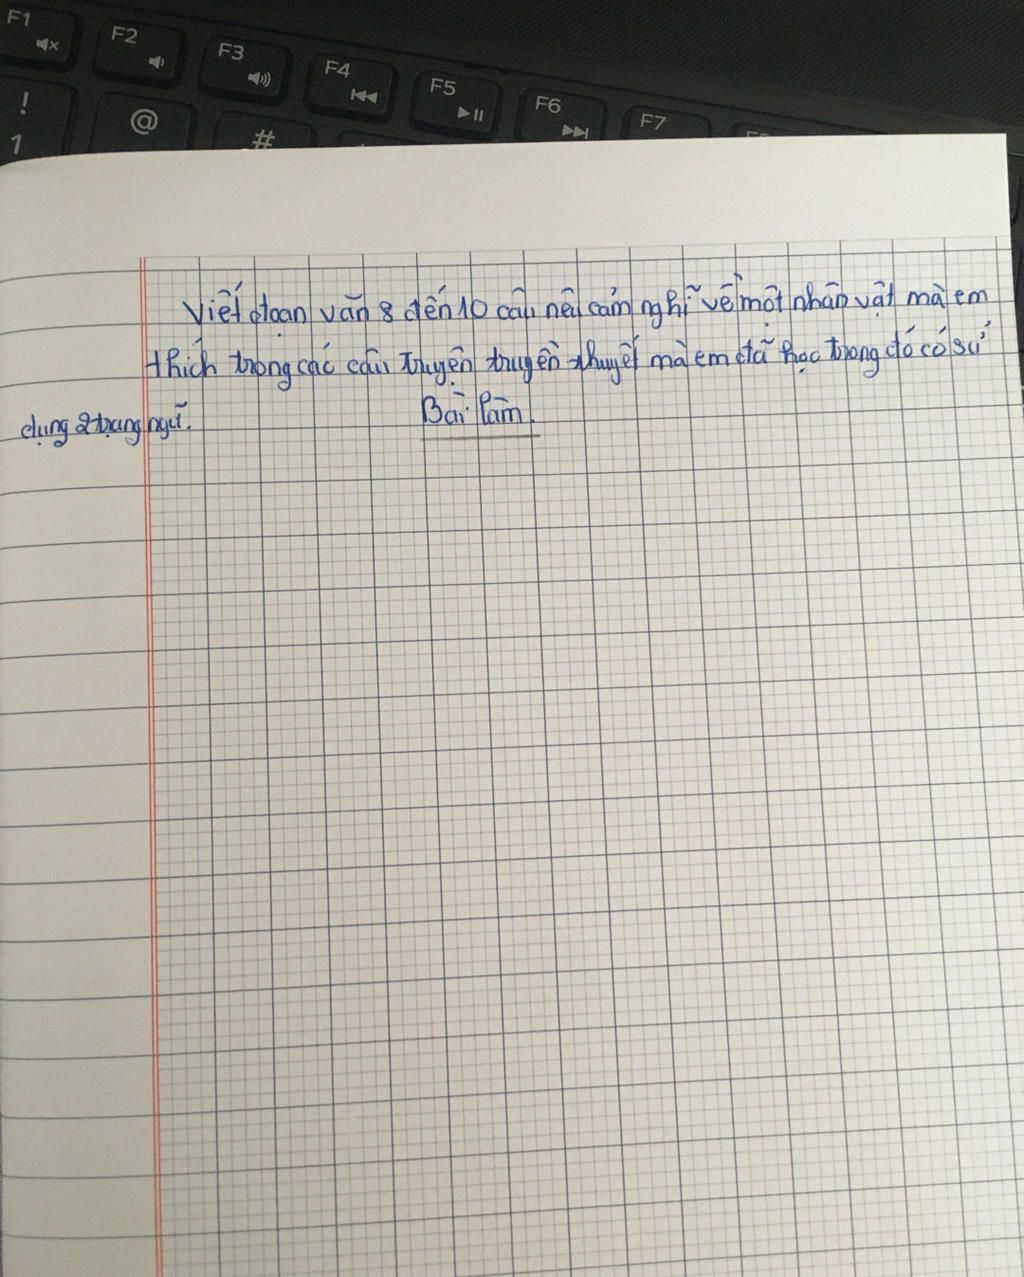 F1 F2 F3 F4 F5 F6 F7
! @ #
1
Viết đoạn văn 8 đến 10 câu nêu cảm nghĩ về một nhân vật mà em
thích trong các câu truyện truyền thuyết mà em đã học trong đó có sử
dụng 2 trạng ngữ.
Bài làm.